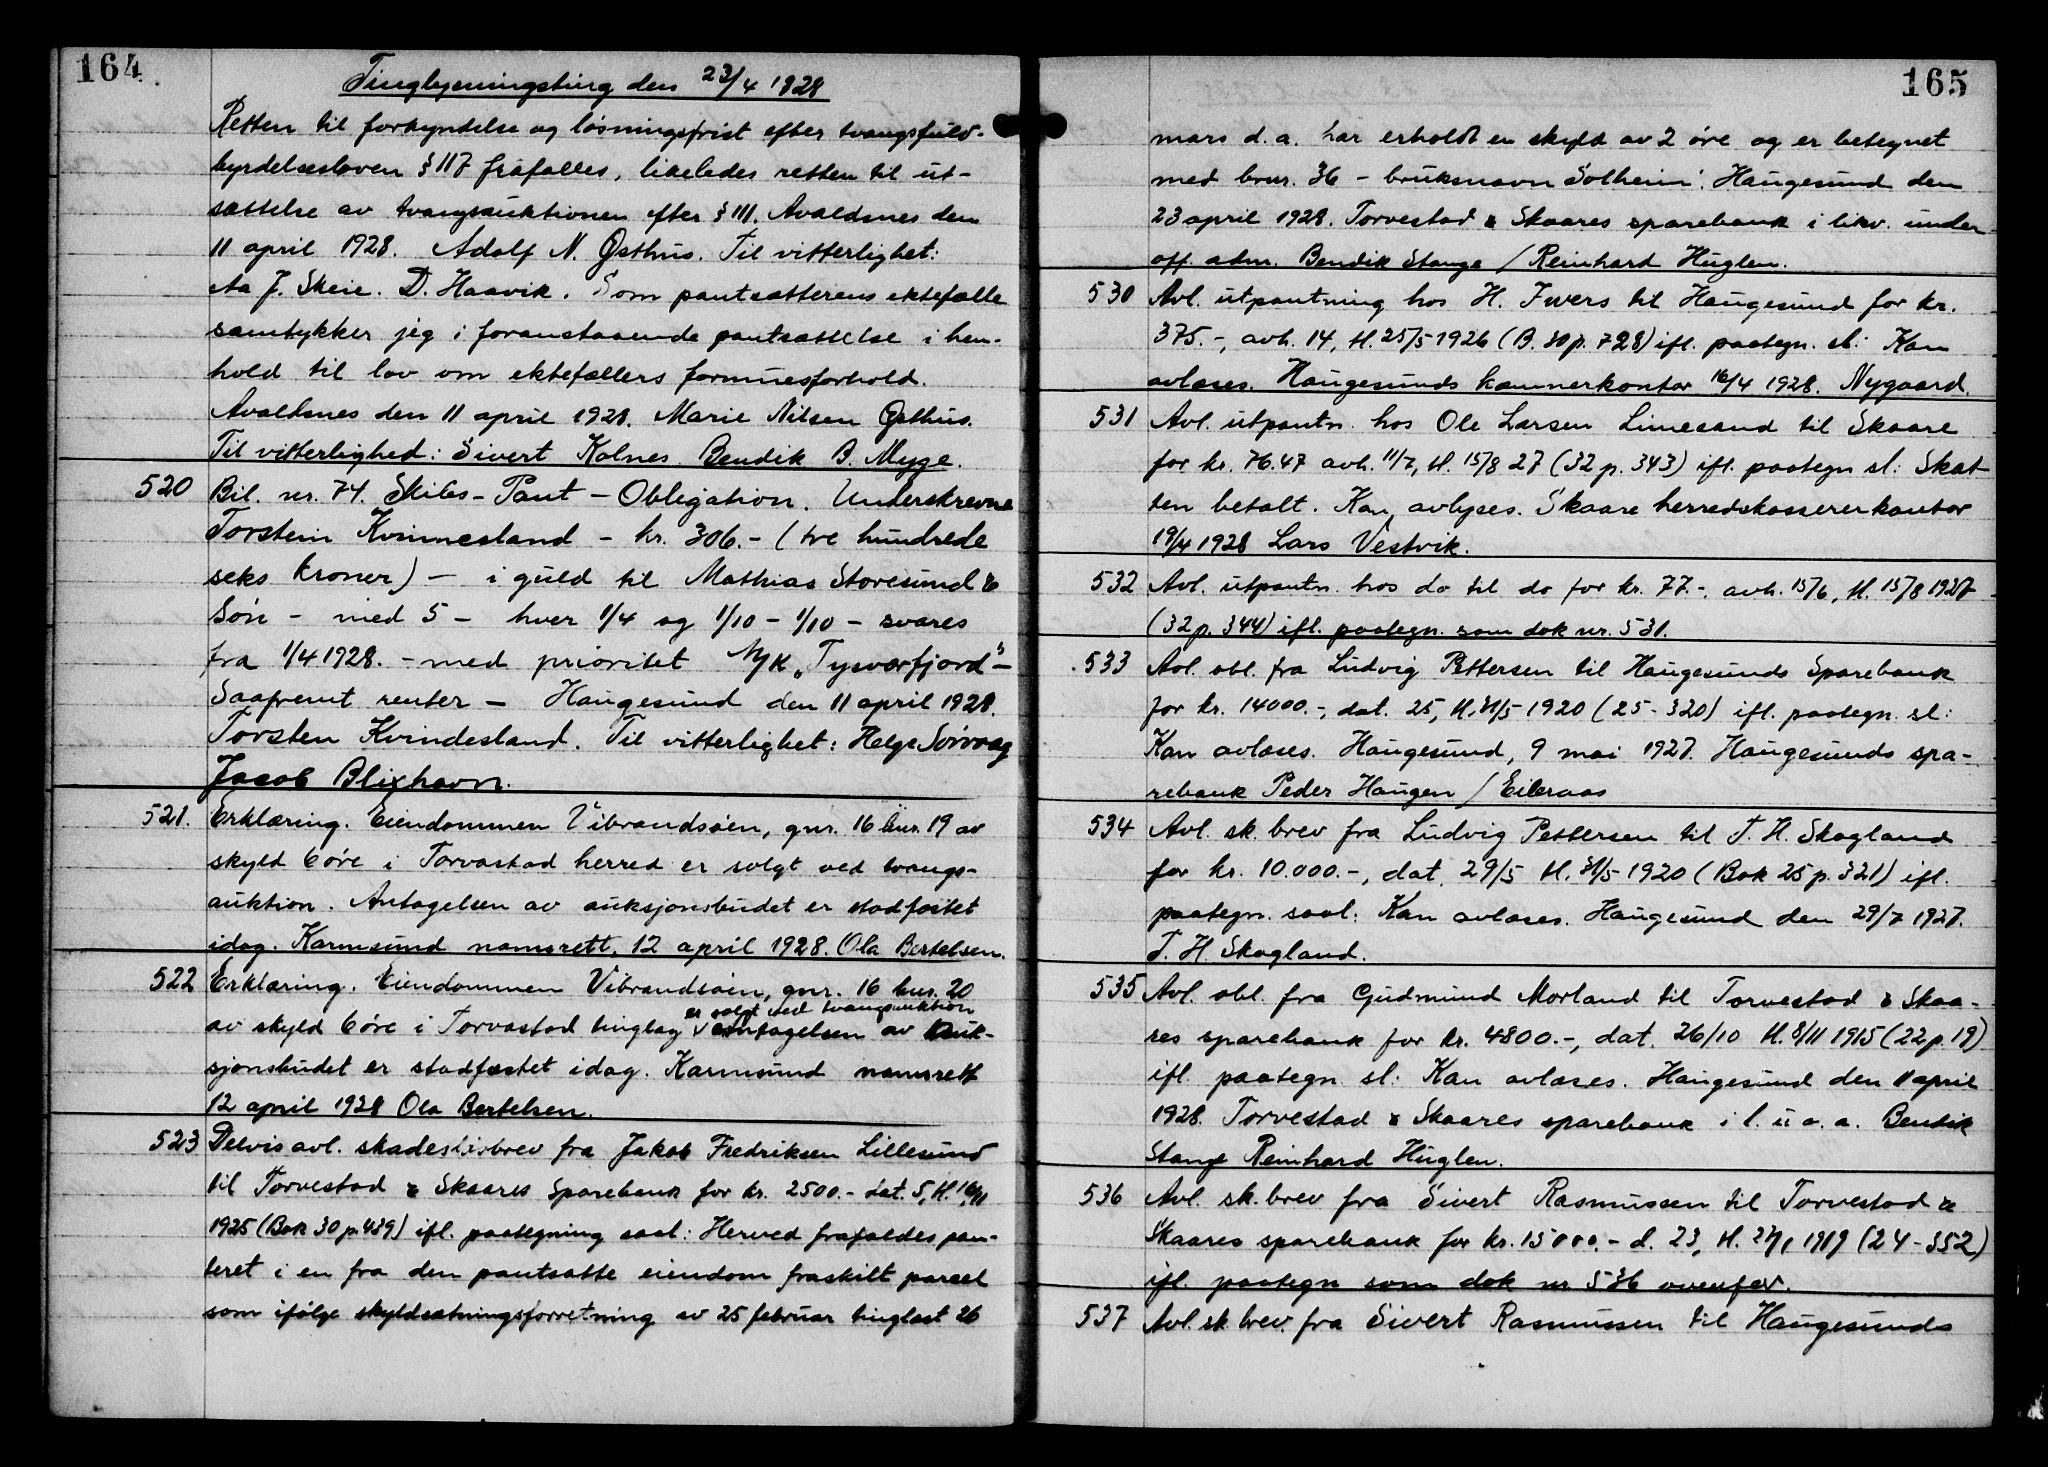 164
Tinglysningsting den 23/4 1928
Retten til forkyndelse og løsningsfrist efter tvangsfuld-
byrdelsesloven § 117 frafalles, likeledes retten til ut-
sættelse av tvangsauktionen efter § 111. Avaldsnes den
11 april 1928. Adolf N. Østhus. Til vitterlighet:
Aa J. Skeie. D. Haavik. Som pantsætterens ektefælle
samtykker jeg i foranstaaende pantsættelse i hen-
hold til lov om ektefællers formuesforhold.
Avaldsnes den 11 april 1928. Marie Nilsen Østhus.
Til vitterlighed: Sivert Kolnes. Bendik B. Myge.
520 Bil. nr. 74. Skibs-Pant-Obligation. Underskrevne
Torstein Kvinnesland - kr. 306.- (tre hundrede
seks kroner) - i guld til Mathias Storesund &
Søn - med 5 - hver 1/4 og 1/10 - 1/10 - svares
fra 1/4 1928. - med prioritet M/K „Tysværfjord" -
Saafremt renter - Haugesund den 11 april 1928.
Torsten Kvindesland. Til vitterlighet: Helge Sørvaag
Jacob Blixhavn.
521. Erklæring. Eiendommen Vibrandsøen, gnr. 16 bnr. 19 av
skyld 6 øre i Torvastad herred er solgt ved tvangs-
auktion. Antagelsen av auksjonsbudet er stadfæstet
idag. Karmsund namsrett, 12 april 1928. Ola Bertelsen.
522 Erklæring. Eiendommen Vibrandsøen, gnr. 16 bnr. 20
er solgt ved tvangsauktion
av skyld 6 øre i Torvastad tinglag v antagelsen av auk-
sjonsbudet er stadfæstet idag. Karmsund namsrett
12 april 1928 Ola Bertelsen.
523 Delvis avl. skadesløsbrev fra Jakob Fredriksen Lillesund
til Torvestad & Skaares Sparebank for kr. 2500.- dat. 5, tl. 16/11
1925 (Bok 30 p. 439) ifl. paategning saal: Herved frafaldes pan-
teret i en fra den pantsatte eiendom fraskilt parcel
som ifølge skyldsætningsforretning av 25 februar tinglæst 26
165
mars d.a. har erholdt en skyld av 2 øre og er betegnet
med brnr. 36 - bruksnavn Solheim. Haugesund den
23 april 1928. Torvestad & Skaares sparebank i likv. under
off. adm. Bendik Stange / Reinhard Huglen.
530 Avl. utpantning hos H. Iwers til Haugesund for kr.
375.-, avh. 14, tl. 25/5 1926 (B. 30 p. 728) ifl. paategn. sl: Kan
avlæses. Haugesunds kæmnerkontor 16/4 1928. Nygaard.
531 Avl. utpantn. hos Ole Larsen Limesand til Skaare
for kr. 76.47 avh. 11/7, tl. 15/8 27 (32 p. 343) ifl. paategn sl: Skat-
ten betalt. Kan avlyses. Skaare herredskassererkontor
19/4 1928 Lars Vestvik.
532 Avl. utpantn. hos do til do for kr. 77.-, avh. 15/6, tl. 15/8 1927
(32 p. 344) ifl. paategn. som dok nr. 531.
533 Avl. obl. fra Ludvig Pettersen til Haugesunds Sparebank
for kr. 14000.-, dat. 25, tl. 31/5 1920 (25-320) ifl. paategn. sl:
Kan avlæses. Haugesund, 9 mai 1927. Haugesunds spa-
rebank Peder Haugen / Eikraas
534 Avl. sk. brev fra Ludvig Pettersen til T. H. Skogland
for kr. 10.000.-, dat. 29/5 tl. 31/5 1920 (Bok 25 p. 321) ifl.
paategn. saal: Kan avlæses. Haugesund den 29/7 1927.
T. H. Skogland.
535 Avl. obl. fra Gudmund Morland til Torvestad & Skaa-
res sparebank for kr. 4800.-, dat. 26/10 tl. 8/11 1915 (22 p 19)
ifl. paategn sl: Kan avlæses. Haugesund den 11 april
1928. Torvestad & Skaares sparebank i l. u o. a. Bendik
Stange Reinhard Huglen.
536 Avl. sk. brev fra Sivert Rasmussen til Torvestad &
Skaares sparebank for kr. 15000.- d. 23, tl. 27/1 1919 (24-352)
ifl. paategn som dok nr 536 ovenfor.
537 Avl. sk. brev. fra Sivert Rasmussen til Haugesunds